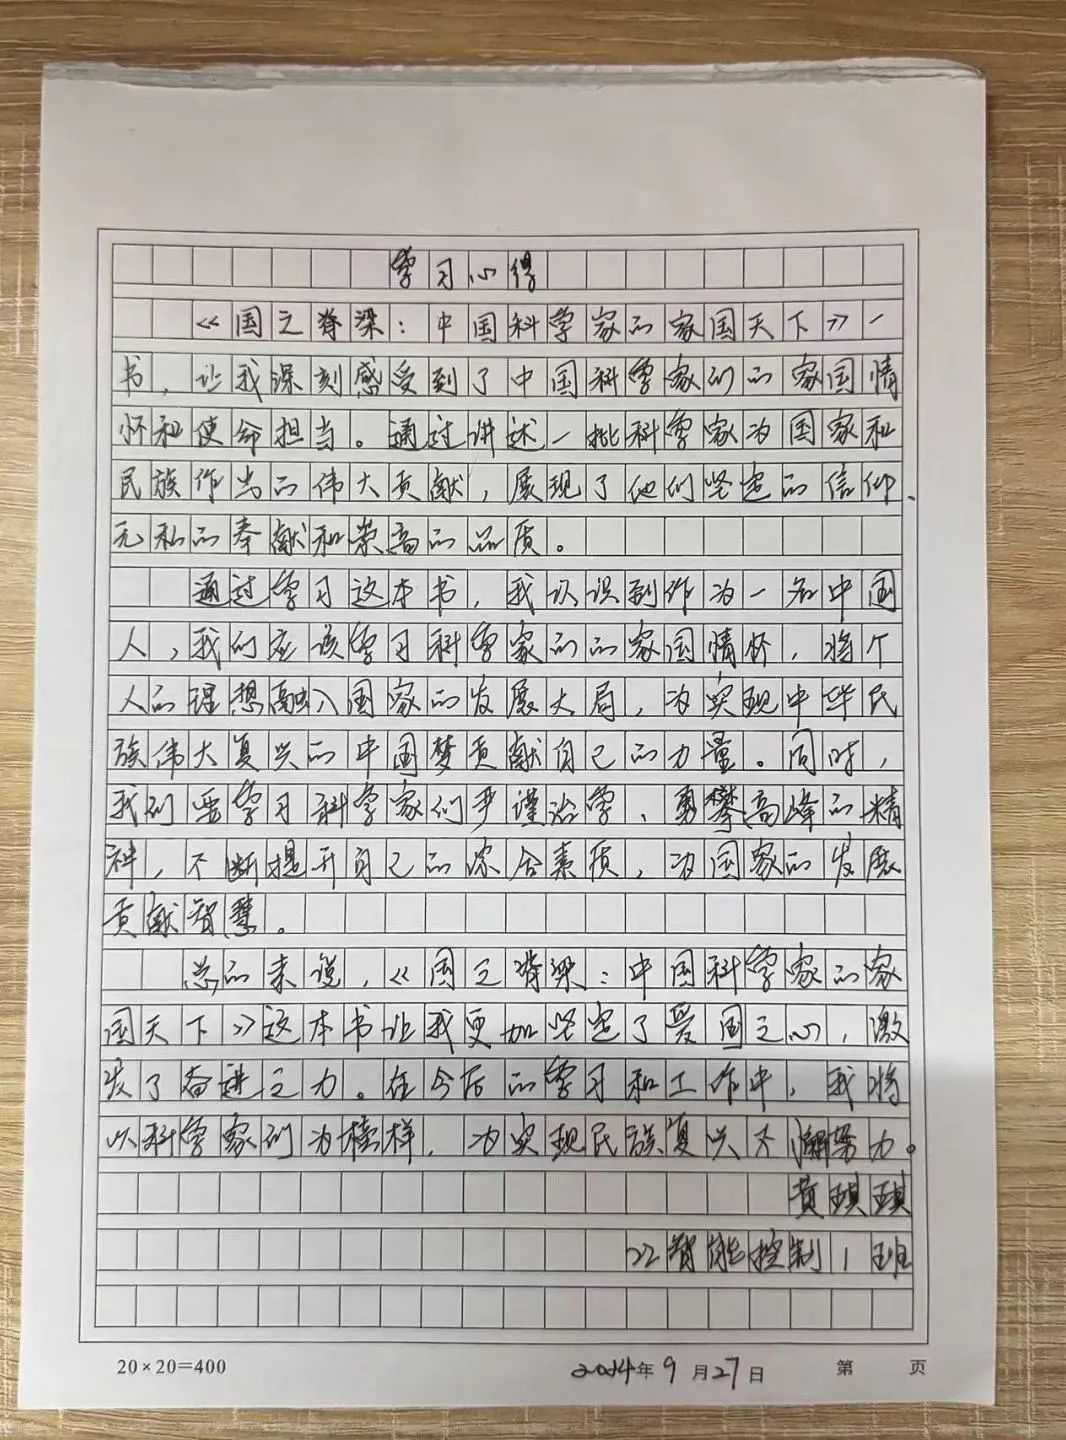 学习心得
《国之脊梁:中国科学家的家国天下》一
书，让我深刻感受到了中国科学家们的家国情
怀和使命担当。通过讲述一批科学家为国家和
民族作出的伟大贡献，展现了他们坚定的信仰、
无私的奉献和崇高的品质。
通过学习这本书，我认识到作为一名中国
人，我们应该学习科学家们的家国情怀，将个
人的理想融入国家的发展大局，为实现中华民
族伟大复兴的中国梦贡献自己的力量。同时，
我们要学习科学家们严谨治学、勇攀高峰的精
神，不断提升自己的综合素质，为国家的发展
贡献智慧。
总的来说，《国之脊梁:中国科学家的家
国天下》这本书让我更加坚定了爱国之心，激
发了奋进之力。在今后的学习和工作中，我将
以科学家们为榜样，为实现民族复兴不懈努力。
黄琪琪
22智能控制1班
20×20=400
2024年9月27日 第 页